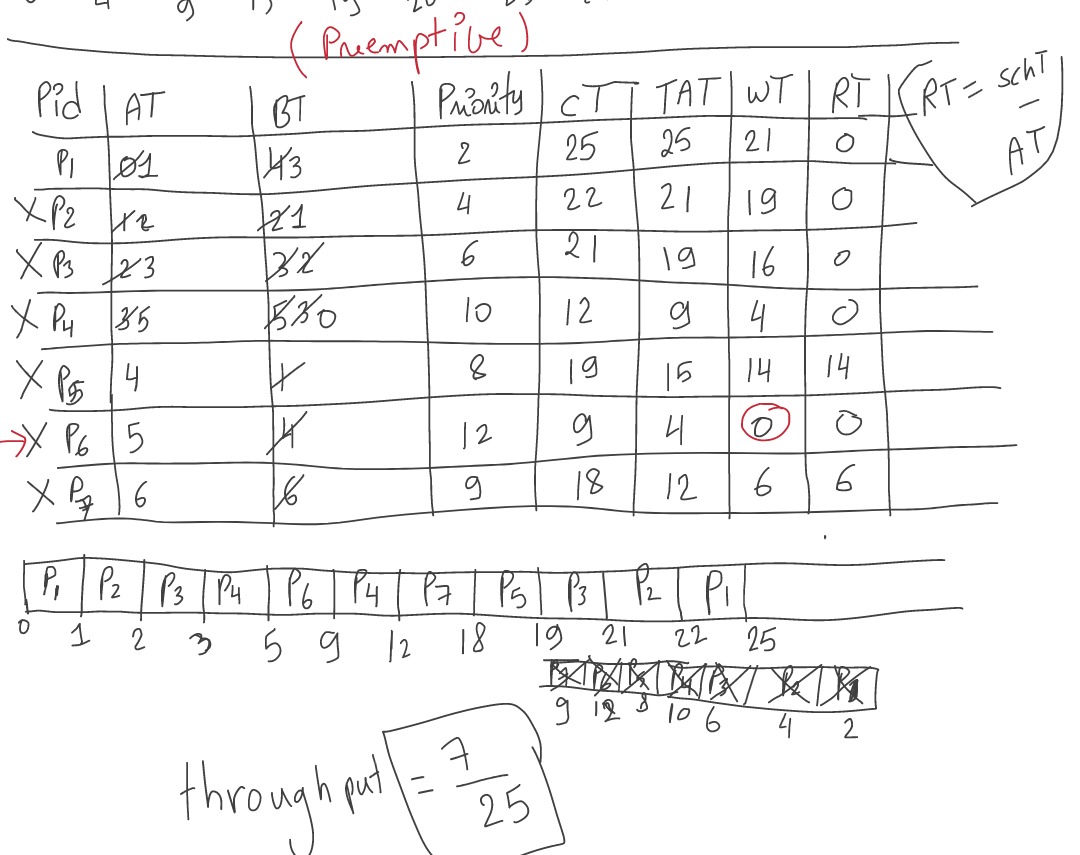 (Preemptive)
Pid AT BT Priority CT TAT WT RT RT = schT - AT
P1 0 1 4 3 2 25 25 21 0
X P2 1 2 2 1 4 22 21 19 0
X P3 2 3 3 2 6 21 19 16 0
X P4 3 5 5 3 0 10 12 9 4 0
X P5 4 1 8 19 15 14 14
→ X P6 5 4 12 9 4 0 0
X P7 6 6 9 18 12 6 6
P1 P2 P3 P4 P6 P4 P7 P5 P3 P2 P1
0 1 2 3 5 9 12 18 19 21 22 25
P6 P4 P3 P2 P1
9 12 8 10 6 4 2
throughput = 7/25